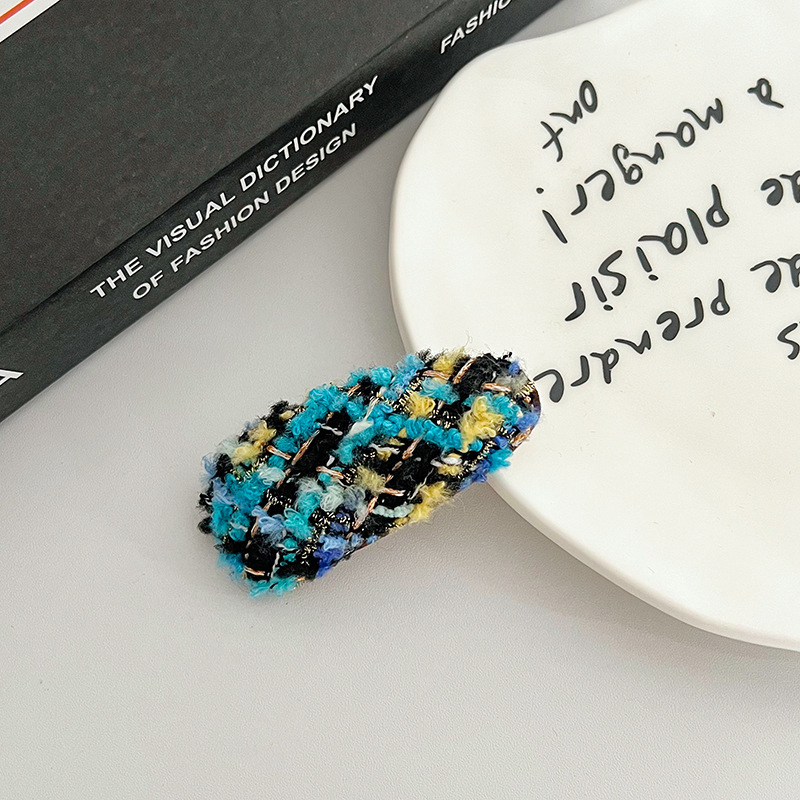 THE VISUAL DICTIONARY
OF FASHION DESIGN
FASHIO
A
s
de prendre
de plaisir
a manger!
ont